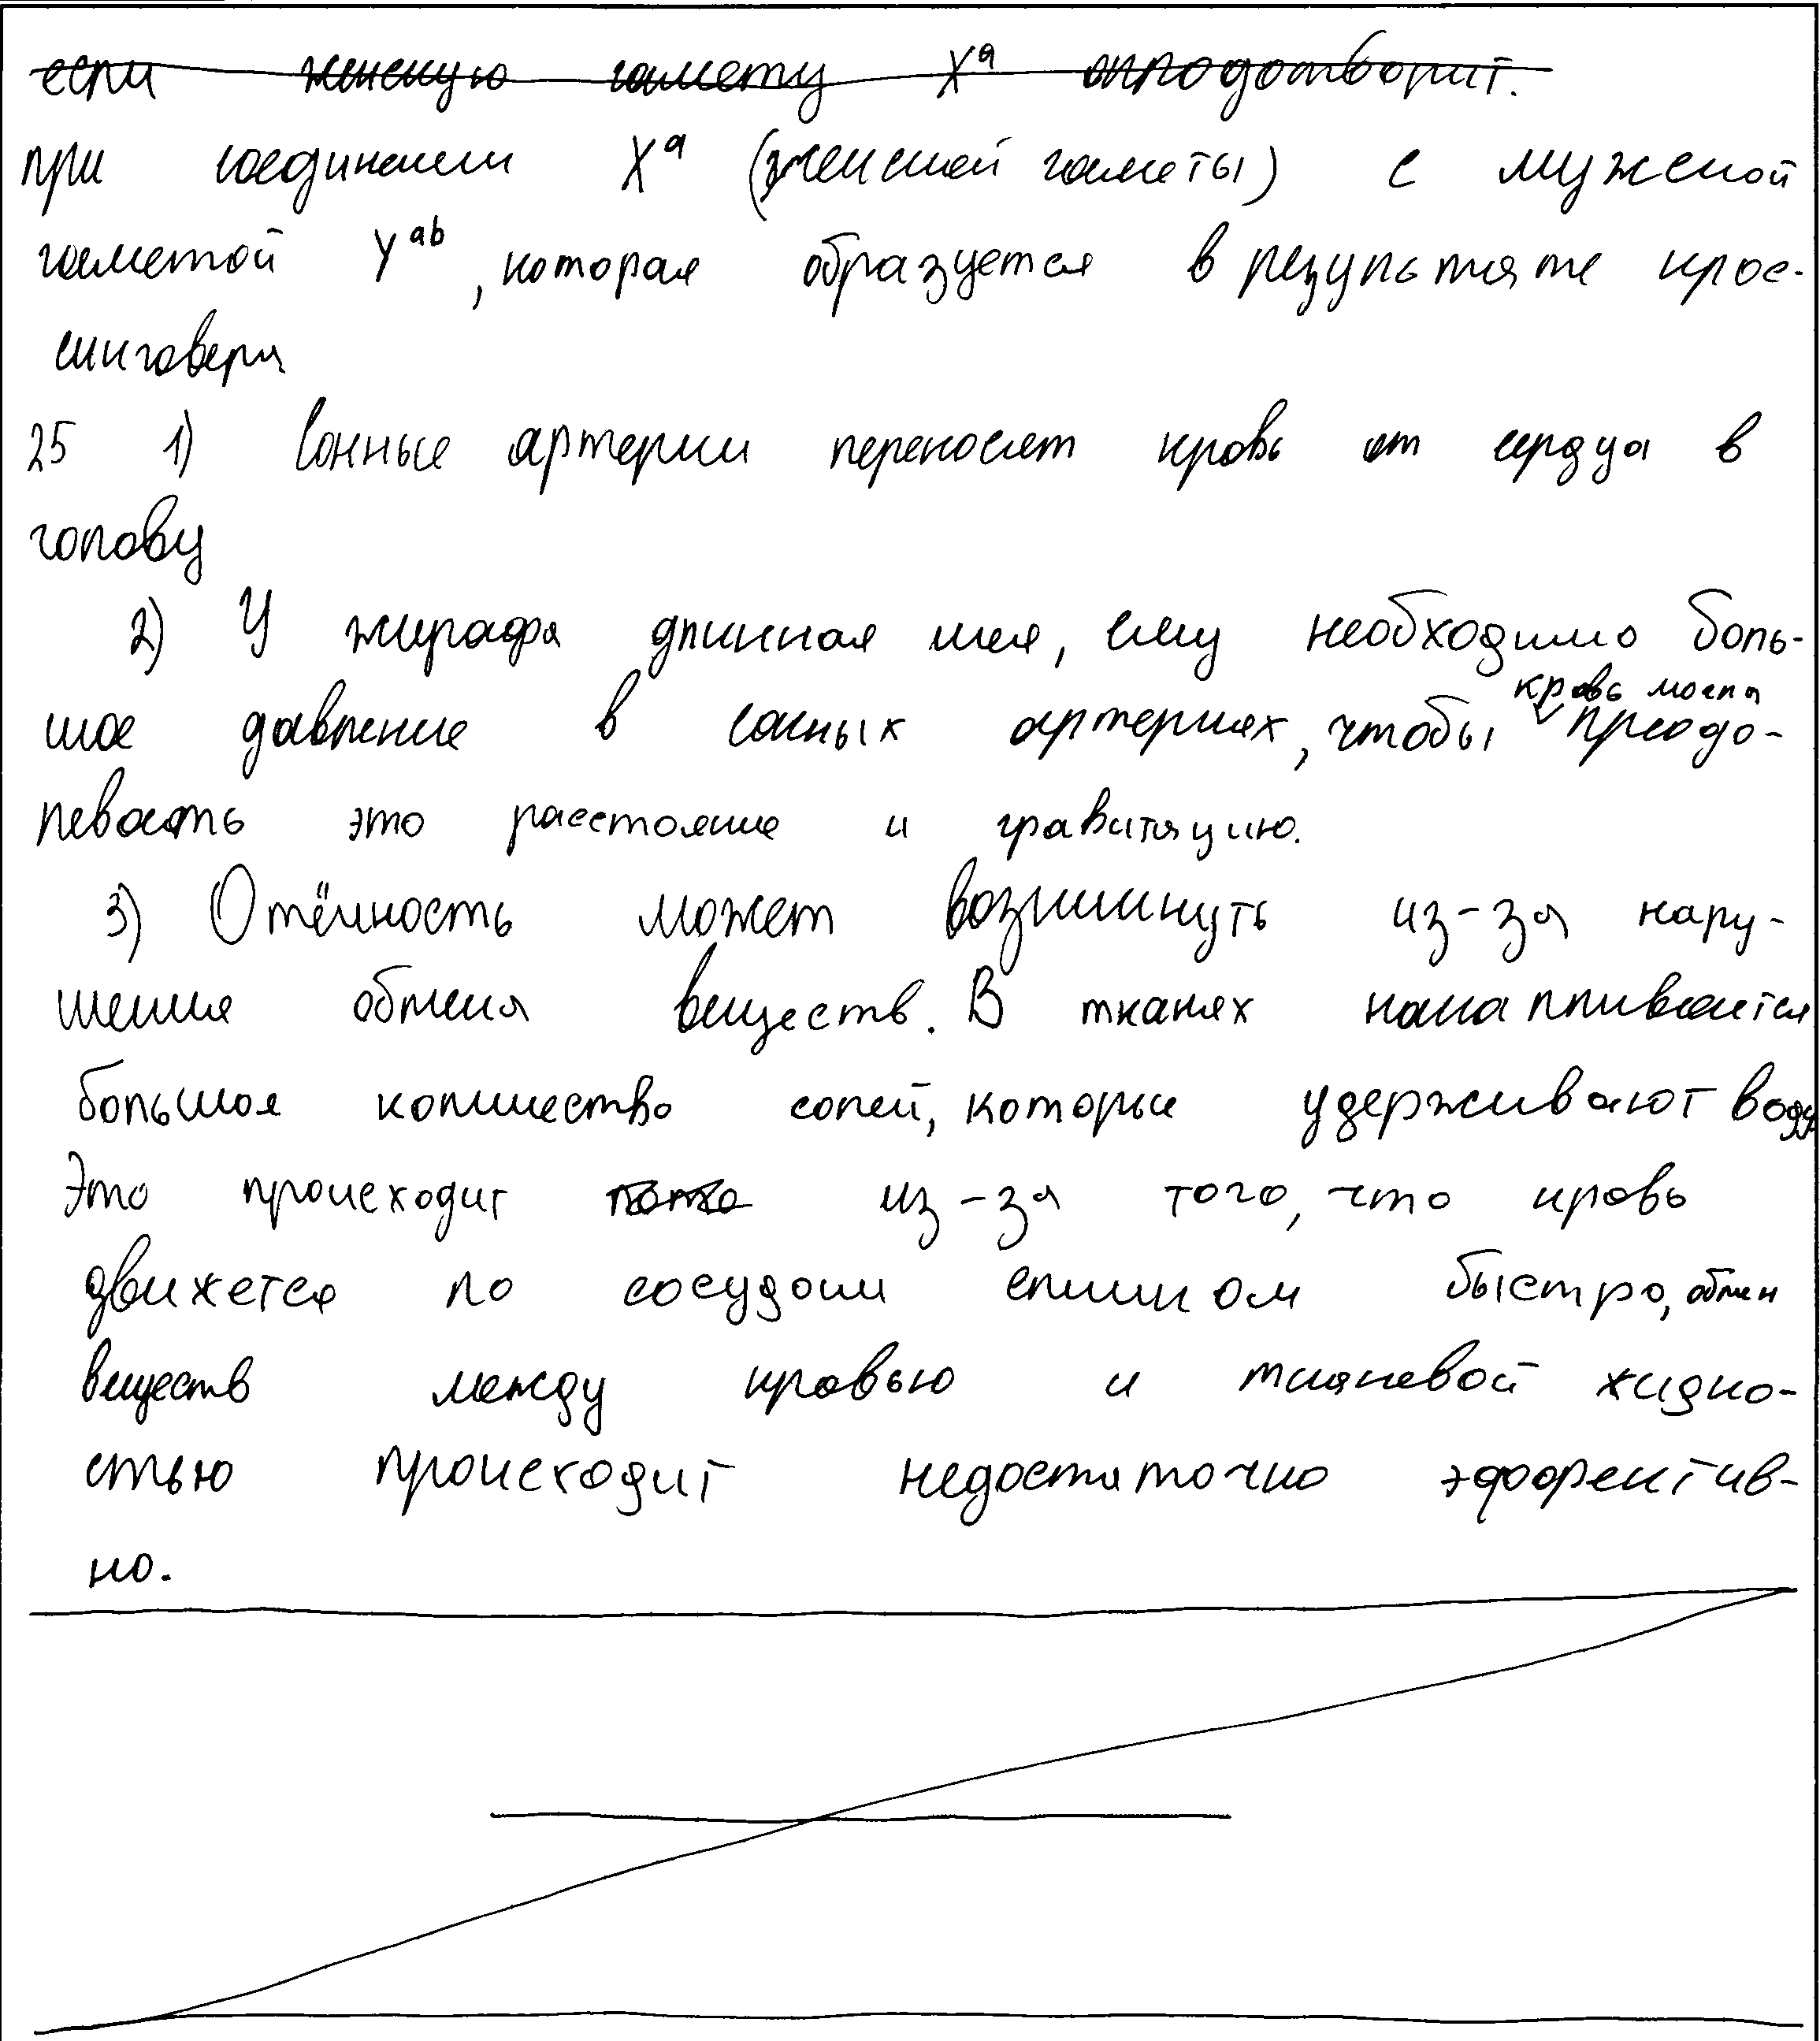 если женскую гамету Xᵃ оплодотворит.
при соединении Xᵃ (женской гаметы) с мужской
гаметой Yᵃᵇ, которая образуется в результате крос-
синговера
25 1) Сонные артерии переносят кровь от сердца в
голову
2) У жирафа длинная шея, ему необходимо боль-
шое давление в сонных артериях, чтобы кровь могла преодо-
левать это расстояние и гравитацию.
3) Отёчность может возникнуть из-за нару-
шения обмена веществ. В тканях накапливается
большое количество солей, которые удерживают воду
Это происходит из-за того, что кровь
движется по сосудам слишком быстро, обмен
веществ между кровью и тканевой жидко-
стью происходит недостаточно эффектив-
но.